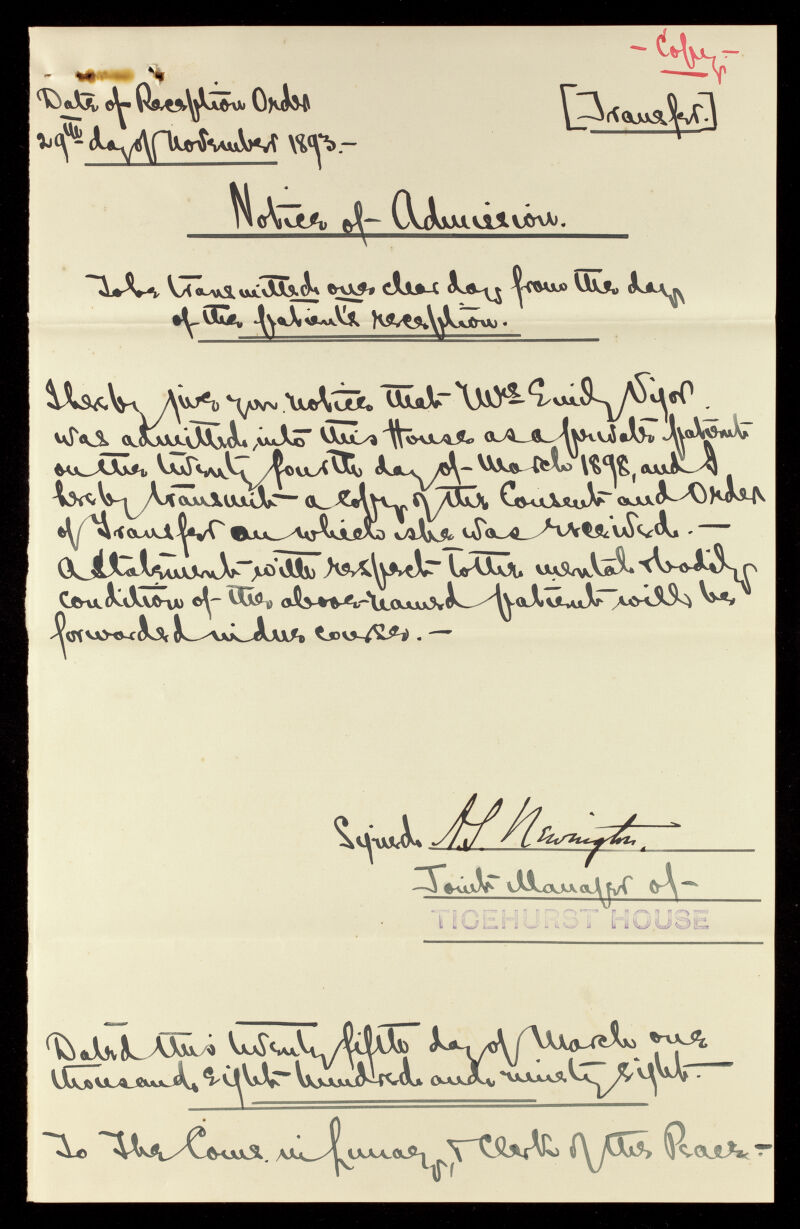 - Copy -
Date of Reception Order
29th day of November 1893. -
[Transfer.]
Notice of Admission.
To be transmitted one clear day from the day
of the patient's reception.
I hereby give you notice that Mrs Emily
was admitted into this House as a private patient
on the twenty fourth day of March 1898, and I
hereby transmit a copy of the Consent and Order
of Transfer on which she was received. -
A Statement with respect to the mental & bodily
condition of the above-named patient will be
forwarded in due course. -
Signed A.S. Newington.
Joint Manager of
TICEHURST HOUSE
Dated this twenty fifth day of March one
thousand eight hundred and ninety eight. -
To The Coms. in Lunacy, & Clerk of the Peace -